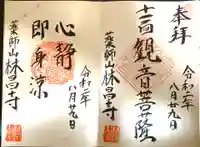 奉拝
十一面観音菩薩
令和二年
八月廿九日
薬師山林昌寺
心静
即身涼
令和二年
八月廿九日
薬師山林昌寺